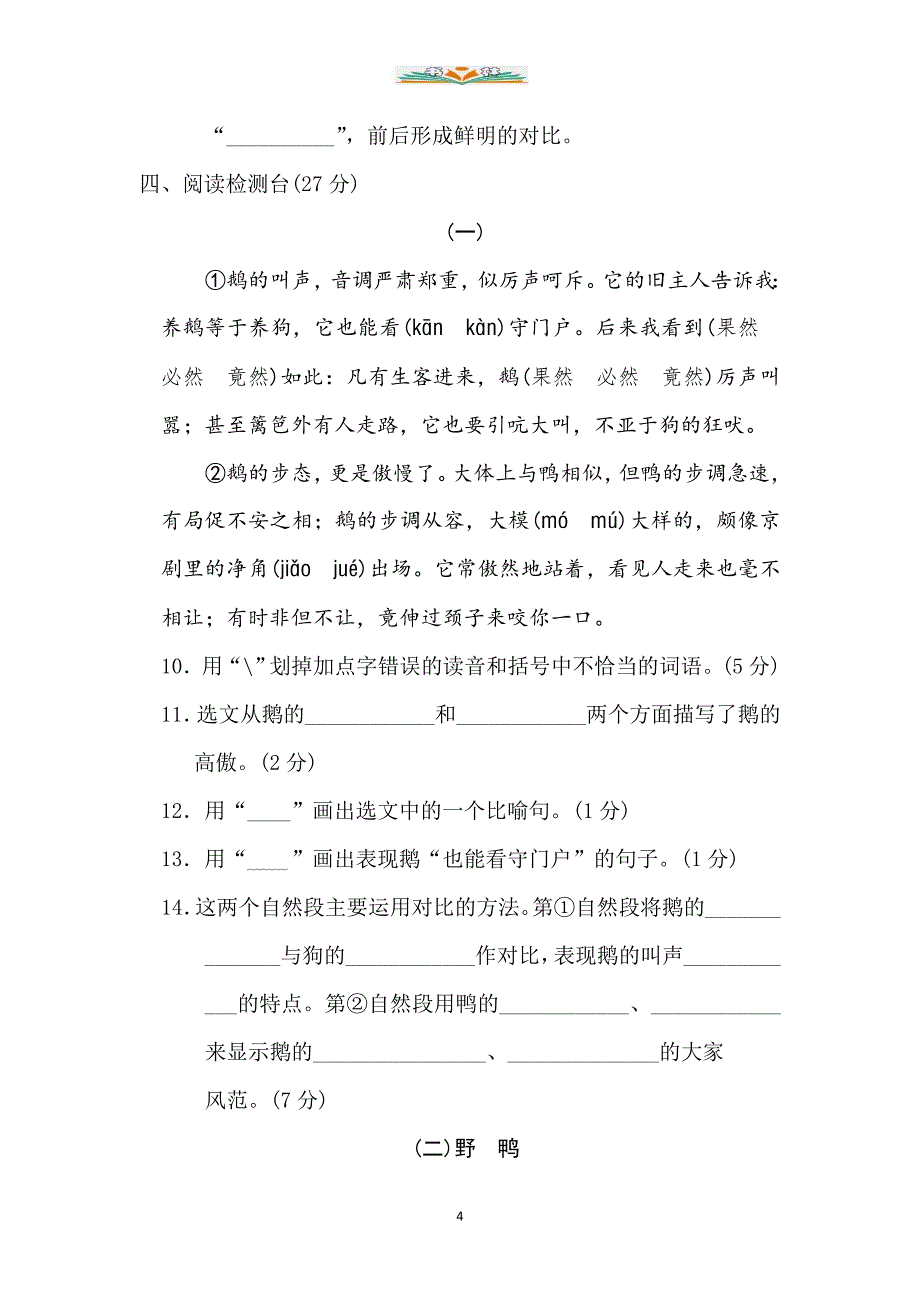 书林
“__________”，前后形成鲜明的对比。
四、阅读检测台(27 分)
(一)
①鹅的叫声，音调严肃郑重，似厉声呵斥。它的旧主人告诉我:
养鹅等于养狗，它也能看(kān　kàn)守门户。后来我看到(果然
必然　竟然)如此：凡有生客进来，鹅(果然　必然　竟然)厉声叫
嚣；甚至篱笆外有人走路，它也要引吭大叫，不亚于狗的狂吠。
②鹅的步态，更是傲慢了。大体上与鸭相似，但鸭的步调急速，
有局促不安之相；鹅的步调从容，大模(mó　mú)大样的，颇像京
剧里的净角(jiǎo　jué)出场。它常傲然地站着，看见人走来也毫不
相让；有时非但不让，竟伸过颈子来咬你一口。
10．用“\”划掉加点字错误的读音和括号中不恰当的词语。(5 分)
11．选文从鹅的____________和____________两个方面描写了鹅的
高傲。(2 分)
12．用“____”画出选文中的一个比喻句。(1 分)
13．用“____”画出表现鹅“也能看守门户”的句子。(1 分)
14．这两个自然段主要运用对比的方法。第①自然段将鹅的_______
_______与狗的____________作对比，表现鹅的叫声_________
___的特点。第②自然段用鸭的____________、____________
来显示鹅的________________、______________的大家
风范。(7 分)
(二)野　鸭
4